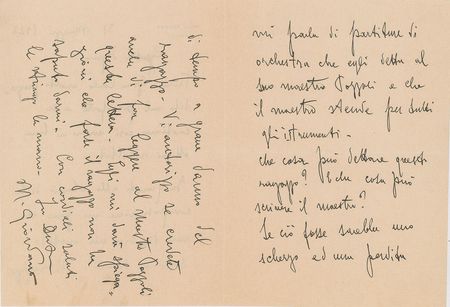 mi parla di partiture di
orchestra che egli detta al
suo maestro Pozzoli e che
il maestro stende per tutti
gli istrumenti.
che cosa può dettare questo
ragazzo? E che cosa può
scrivere il maestro?
Se ciò fosse sarebbe uno
scherzo ed una perdita
di tempo a grave danno del
ragazzo. Vi autorizzo se credete
anche di far leggere al maestro Pozzoli
questa lettera. Egli mi darà spiega-
zioni che forse il ragazzo non ha
saputo darmi. Con cordiali saluti
le stringo la mano.